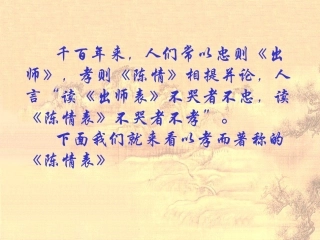 千百年来，人们常以忠则《出
师》，孝则《陈情》相提并论，人
言“读《出师表》不哭者不忠，读
《陈情表》不哭者不孝”。
下面我们就来看以孝而著称的
《陈情表》